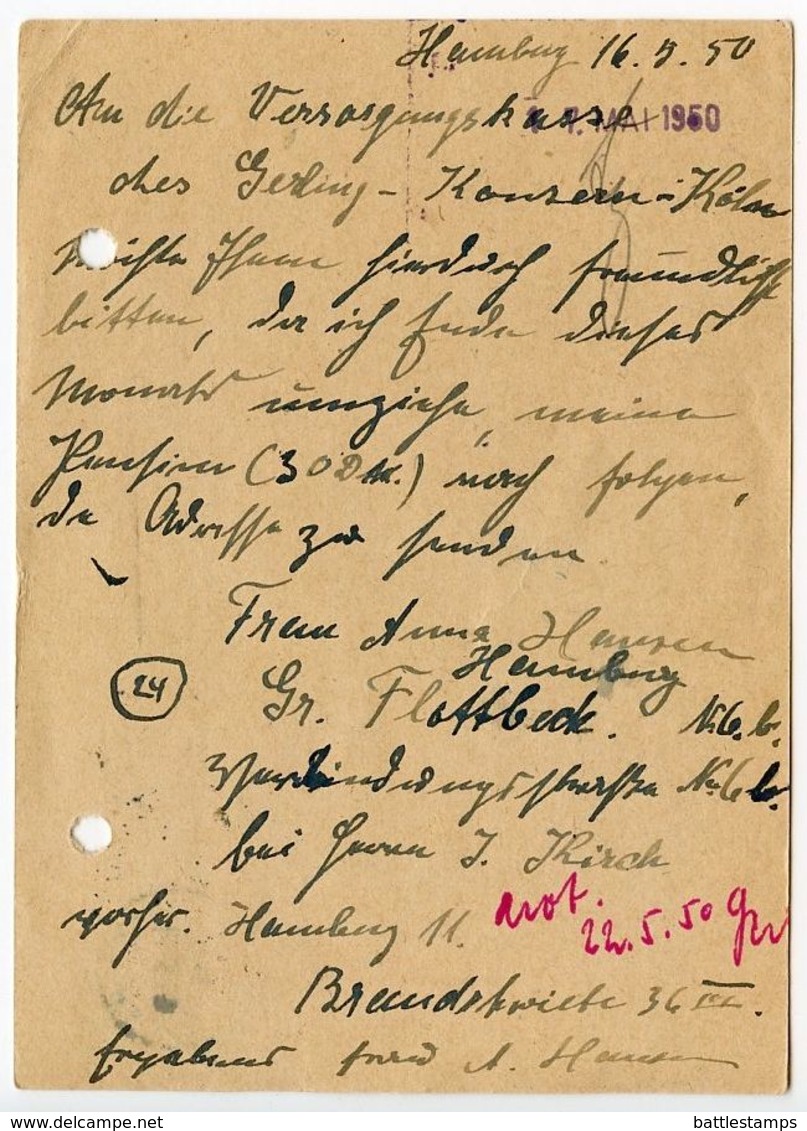 Hamburg 16.5.50
An die Versorgungskasse
MAI 1950
des Gerling-Konzern-Köln
Möchte Ihnen hierdurch freundlichst
bitten, da ich Ende dieses
Monats umziehe, meine
Pension (30 DM.) nach folgen,
de Adresse zu senden
Frau Anna Hansen
Hamburg
24
Gr. Flottbeck. Nr. 6. b.
Verbindungsstraße Nr. 6 b.
bei Herrn J. Kirch
vorher. Hamburg 11.
not.
22.5.50
Brandstwiete 36 III.
Ergebenst Frau A. Hansen
battlestamps